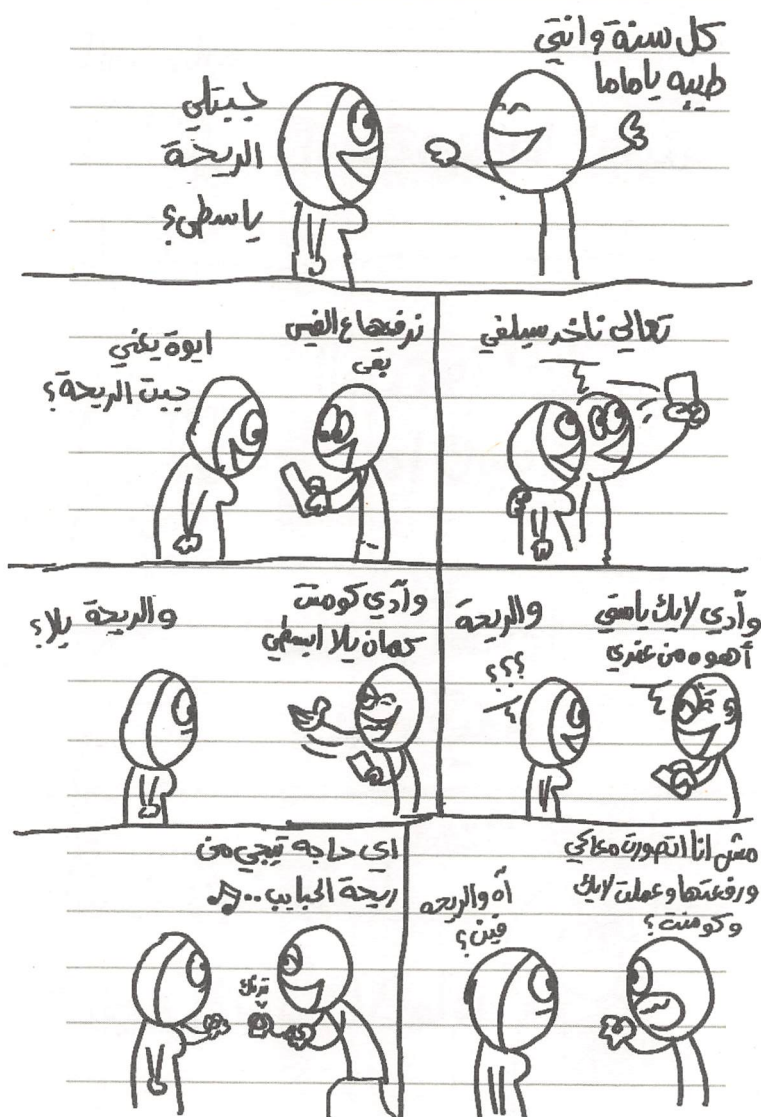 كل سنة وانتي
طيبه ياماما
جيبتلي
الريحة
ياسطى؟
تعالي ناخد سيلفي
نرفعها ع الفيس
بقى
ايوة يعني
جبت الريحة؟
وآدي لايك ياستي
أهوه من عندي
والريحة
؟؟؟
وآدي كومنت
كمان يلا ابسطي
والريحة يلا؟
مش انا اتصورت معاكي
ورفعتها وعملت لايك
وكومنت؟
آه والريحه
فين؟
اي حاجه تيجي من
ريحة الحبايب..